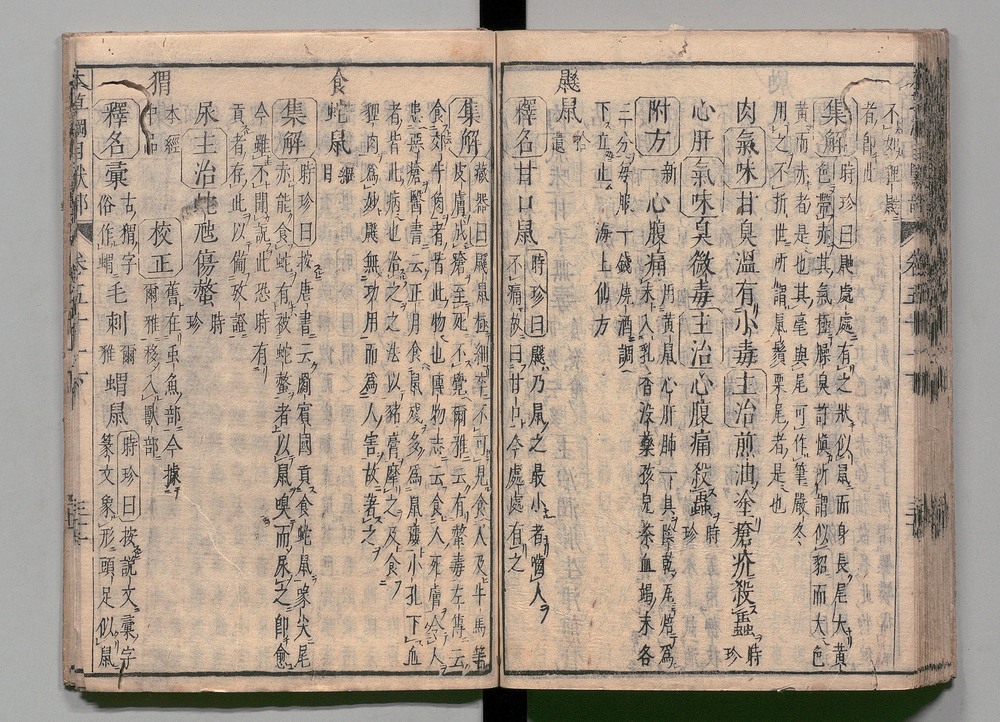 集解時珍曰鼬處處有之狀似鼠而身長尾大黃
色帶赤其氣極臊臭許慎所謂似貂而大色
黃而赤者是也其毫與尾可作筆嚴冬
用之不折世所謂鼠鬚栗尾者是也
肉氣味甘臭溫有小毒主治煎油塗瘡疥殺蟲時珍
心肝氣味臭微毒主治心腹痛殺蟲時珍
附方新一心腹痛用黃鼠心肝肺一具陰乾瓦焙爲
末入乳香沒藥孩兒茶血竭末各
二分每服一錢燒酒調
下立止海上仙方
鼷鼠拾遺
釋名甘口鼠時珍曰鼷乃鼠之最小者嚙人
不痛故曰甘口今處處有之
集解藏器曰鼷鼠極細卒不可見食人及牛馬等
皮膚成瘡至死不覺爾雅云有螫毒左傳云
食郊牛角者皆此物也博物志云食人死膚令人
患惡瘡醫書云正月食鼠殘多爲鼠瘻小孔下血
者皆此病也治之之法以豬膏摩之及食
貍肉爲妙鼷無功用而爲人害故著之
食蛇鼠綱目
集解時珍曰按唐書云罽賓國貢食蛇鼠喙尖尾
赤能食蛇有被蛇螫者以鼠嗅而尿之卽愈
今雖不聞說此恐時有
貢者存此以備攷證
尿主治蛇虺傷螫時珍
猬本經中品校正舊在虫魚部今據
爾雅移入獸部
釋名彙古猬字俗作蝟毛刺爾雅蝟鼠時珍曰按說文彙字
篆文象形頭足似鼠